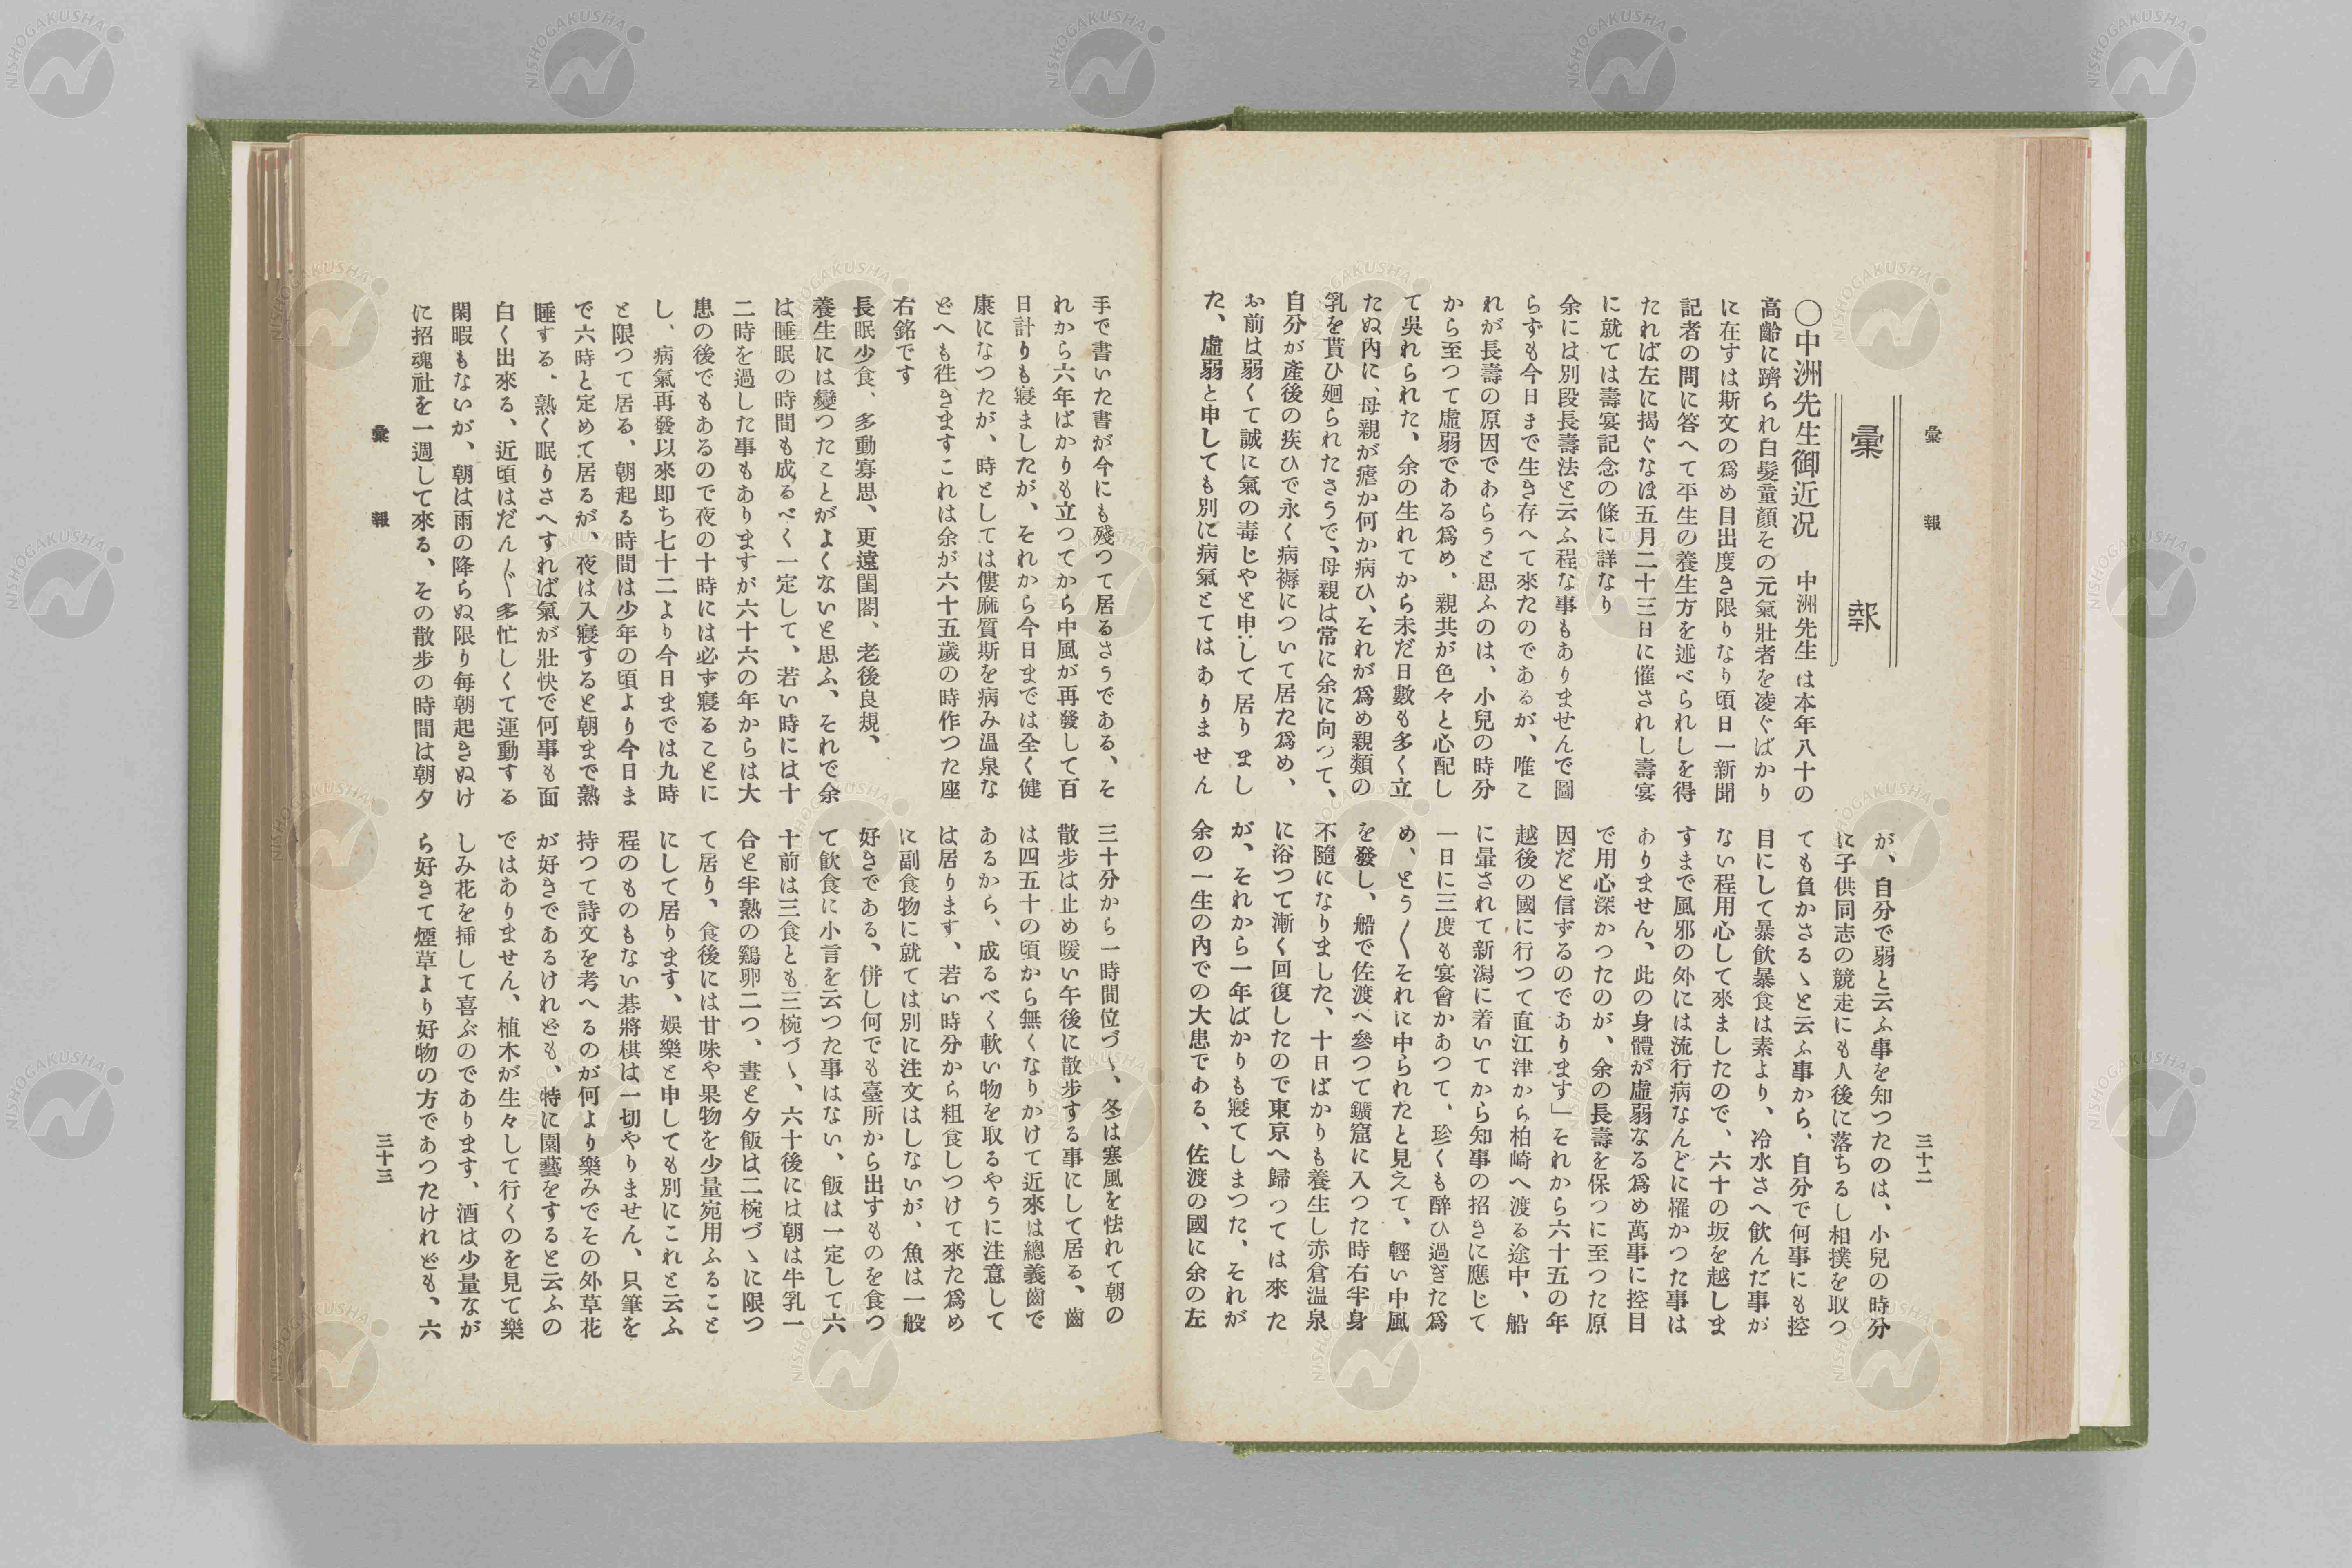 彙報
三十二
彙報
〇中洲先生御近况 中洲先生は本年八十の
高齡に躋られ白髮童顏その元氣壯者を凌ぐばかり
に在すは斯文の爲め目出度き限りなり頃日一新聞
記者の問に答へて平生の養生方を述べられしを得
たれば左に揭ぐなほ五月二十三日に催されし壽宴
に就ては壽宴記念の條に詳なり
余には別段長壽法と云ふ程な事もありませんで圖
らずも今日まで生き存へて來たのであるが、唯こ
れが長壽の原因であらうと思ふのは、小兒の時分
から至つて虛弱である爲め、親共が色々と心配し
て吳れられた、余の生れてから未だ日數も多く立
たぬ內に、母親が瘧か何か病ひ、それが爲め親類の
乳を貰ひ廻られたさうで、母親は常に余に向つて、
自分が產後の疾ひで永く病褥について居た爲め、
お前は弱くて誠に氣の毒じやと申して居りまし
た、虛弱と申しても別に病氣とてはありません
が、自分で弱と云ふ事を知つたのは、小兒の時分
に子供同志の競走にも人後に落ちるし相撲を取つ
ても負かさるゝと云ふ事から、自分で何事にも控
目にして暴飮暴食は素より、冷水さへ飮んだ事が
ない程用心して來ましたので、六十の坂を越しま
すまで風邪の外には流行病なんどに罹かつた事は
ありません、此の身體が虛弱なる爲め萬事に控目
で用心深かつたのが、余の長壽を保つに至つた原
因だと信ずるのであります」それから六十五の年
越後の國に行つて直江津から柏崎へ渡る途中、船
に暈されて新潟に着いてから知事の招きに應じて
一日に三度も宴會かあつて、珍くも醉ひ過ぎた爲
め、とう〳〵それに中られたと見えて、輕い中風
を發し、船で佐渡へ參つて鑛窟に入つた時右半身
不隨になりました、十日ばかりも養生し赤倉溫泉
に浴つて漸く回復したので東京へ歸つては來た
が、それから一年ばかりも寢てしまつた、それが
余の一生の內での大患である、佐渡の國に余の左
手で書いた書が今にも殘つて居るさうである、そ
れから六年ばかりも立つてから中風が再發して百
日計りも寢ましたが、それから今日までは全く健
康になつたが、時としては僂麻質斯を病み溫泉な
どへも徃きますこれは余が六十五歲の時作つた座
右銘です
長眠少食、多動寡思、更遠閨閤、老後良規、
養生には變つたことがよくないと思ふ、それで余
は睡眠の時間も成るべく一定して、若い時には十
二時を過した事もありますが六十六の年からは大
患の後でもあるので夜の十時には必ず寢ることに
し、病氣再發以來卽ち七十二より今日までは九時
と限つて居る、朝起る時間は少年の頃より今日ま
で六時と定めて居るが、夜は入寢すると朝まで熟
睡する、熟く眠りさへすれば氣が壯快で何事も面
白く出來る、近頃はだん〴〵多忙しくて運動する
閑暇もないが、朝は雨の降らぬ限り每朝起きぬけ
に招魂社を一週して來る、その散步の時間は朝夕
三十分から一時間位づゝ、冬は寒風を怯れて朝の
散步は止め暖い午後に散步する事にして居る、齒
は四五十の頃から無くなりかけて近來は總義齒で
あるから、成るべく軟い物を取るやうに注意して
は居ります、若い時分から粗食しつけて來た爲め
に副食物に就ては別に注文はしないが、魚は一般
好きである、併し何でも臺所から出すものを食つ
て飮食に小言を云つた事はない、飯は一定して六
十前は三食とも三椀づゝ、六十後には朝は牛乳一
合と半熟の鷄卵二つ、晝と夕飯は二椀づゝに限つ
て居り、食後には甘味や果物を少量宛用ふること
にして居ります、娛樂と申しても別にこれと云ふ
程のものもない碁將棋は一切やりません、只筆を
持つて詩文を考へるのが何より樂みでその外草花
が好きであるけれども、特に園藝をすると云ふの
ではありません、植木が生々して行くのを見て樂
しみ花を揷して喜ぶのであります、酒は少量なが
ら好きて煙草より好物の方であつたけれども、六
彙報
三十三